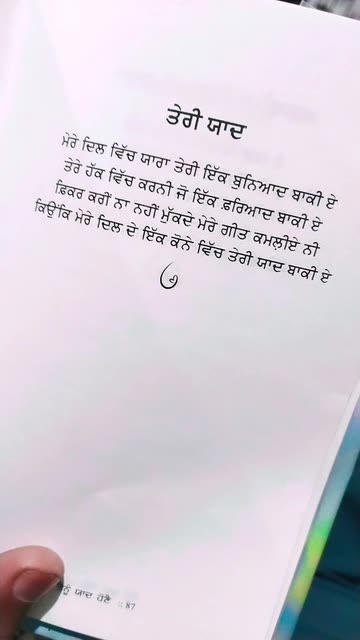 ਤੇਰੀ ਯਾਦ
ਮੇਰੇ ਦਿਲ ਵਿੱਚ ਯਾਰਾ ਤੇਰੀ ਇੱਕ ਬੁਨਿਆਦ ਬਾਕੀ ਏ
ਤੇਰੇ ਹੱਕ ਵਿੱਚ ਕਰਨੀ ਜੋ ਇੱਕ ਫ਼ਰਿਆਦ ਬਾਕੀ ਏ
ਫ਼ਿਕਰ ਕਰੀਂ ਨਾ ਨਹੀਂ ਮੁੱਕਦੇ ਮੇਰੇ ਗੀਤ ਕਮਲੀਏ ਨੀ
ਕਿਉਂਕਿ ਮੇਰੇ ਦਿਲ ਦੇ ਇੱਕ ਕੋਨੇ ਵਿੱਚ ਤੇਰੀ ਯਾਦ ਬਾਕੀ ਏ
ਯਾਦ ਹੋਣੈ :: 87